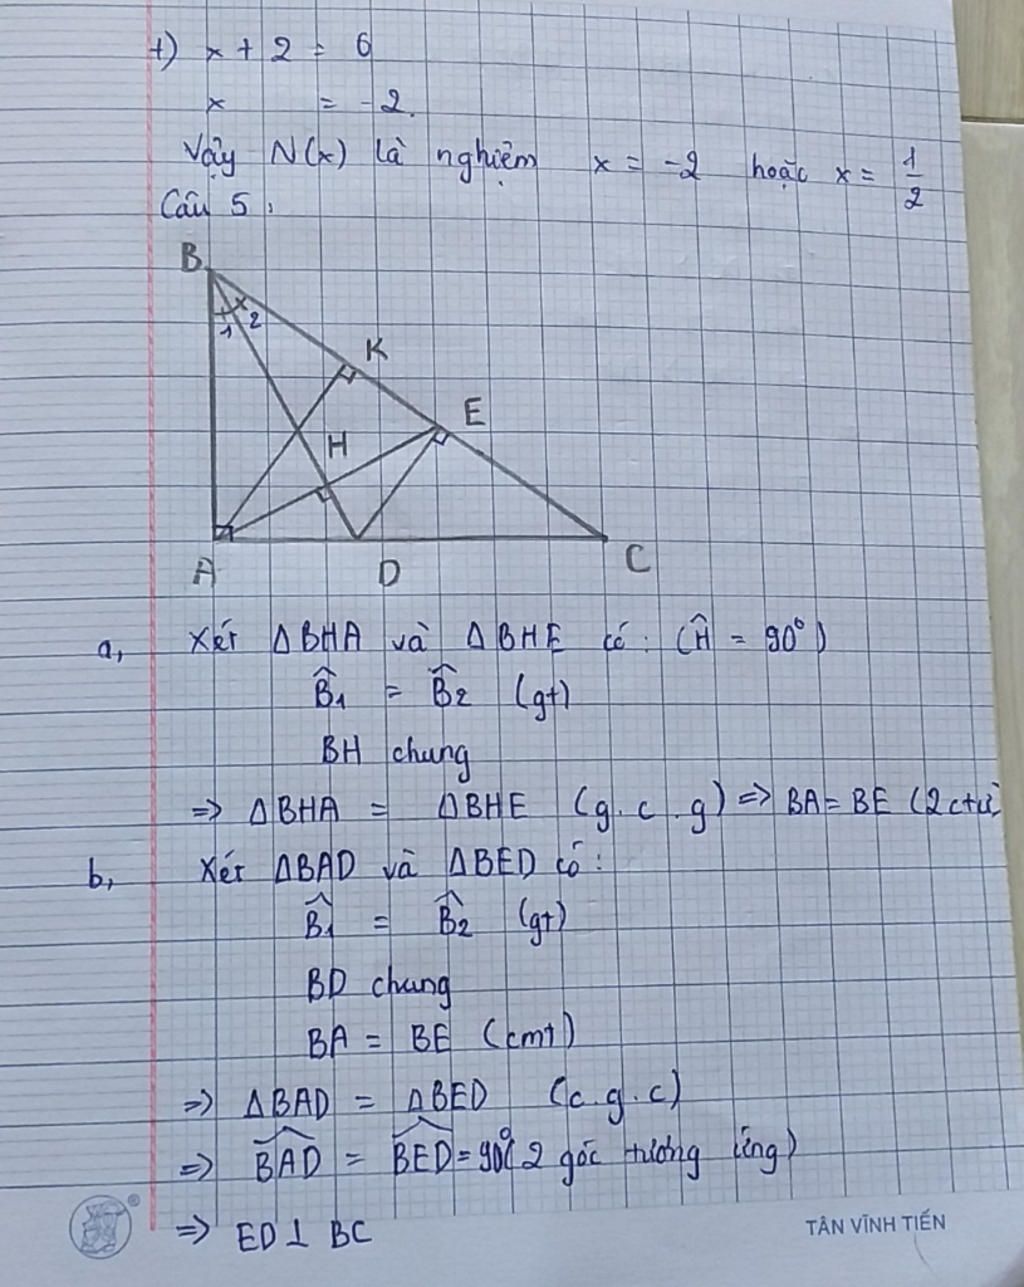 +) x + 2 = 6
x = -2.
Vậy N(x) là nghiệm x = -2 hoặc x = 1/2
Câu 5:
B
1 2
K
E
H
A D C
a, Xét ΔBHA và ΔBHE có: (Ĥ = 90°)
B̂1 = B̂2 (gt)
BH chung
=> ΔBHA = ΔBHE (g.c.g) => BA = BE (2ctư)
b, Xét ΔBAD và ΔBED có:
B̂1 = B̂2 (gt)
BD chung
BA = BE (cmt)
=> ΔBAD = ΔBED (c.g.c)
=> B̂AD = B̂ED = 90° (2 góc tương ứng)
=> ED ⊥ BC
® TÂN VĨNH TIẾN